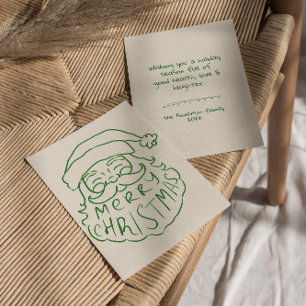 wishing you a holiday
season full of
good health, love &
laughter.
the Anderson family
20XX
MERRY
CHRISTMAS